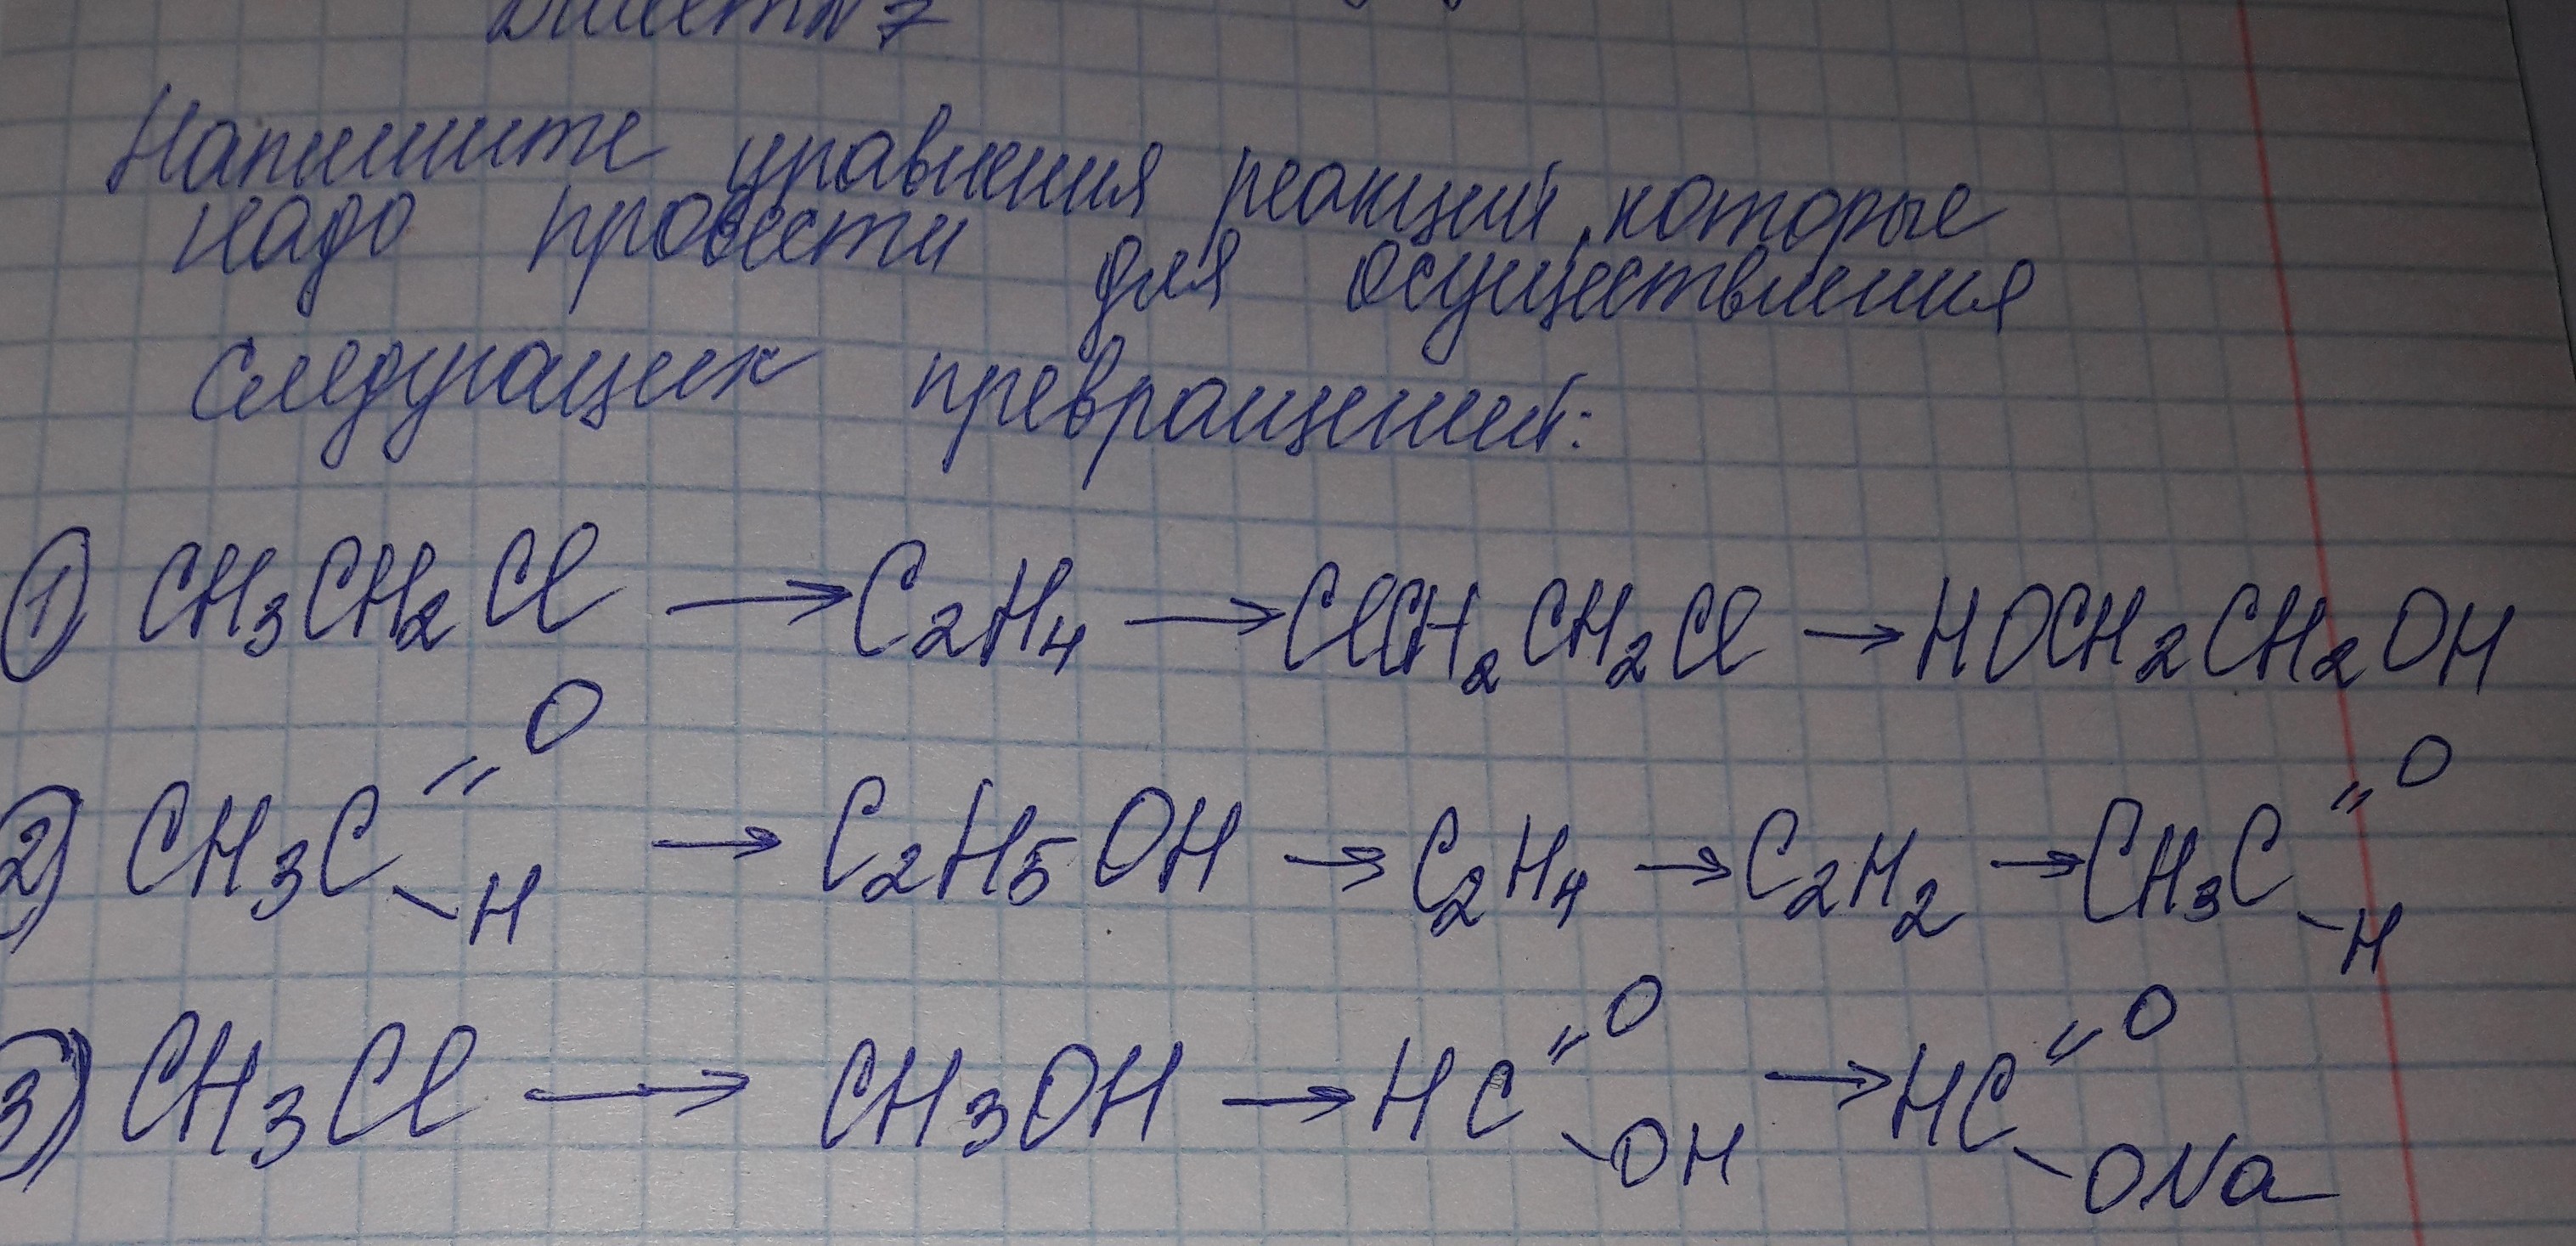 Билет N 7
Напишите уравнения реакций, которые
надо провести для осуществления
следующих превращений:
① CH₃CH₂Cl → C₂H₄ → ClCH₂CH₂Cl → HOCH₂CH₂OH
2) CH₃C(=O)–H → C₂H₅OH → C₂H₄ → C₂H₂ → CH₃C(=O)–H
3) CH₃Cl → CH₃OH → HC(=O)–OH → HC(=O)–ONa